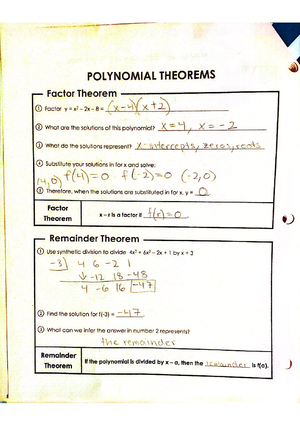 POLYNOMIAL THEOREMS
Factor Theorem
① Factor y = x² – 2x – 8 = (x-4)(x+2)
② What are the solutions of this polynomial? x=4, x=-2
③ What do the solutions represent? x-intercepts, zeros, roots
④ Substitute your solutions in for x and solve:
(4,0) f(4)=0 f(-2)=0 (-2,0)
⑤ Therefore, when the solutions are substituted in for x, y = 0
Factor Theorem
x – r is a factor if f(r)=0
Remainder Theorem
① Use synthetic division to divide 4x³ + 6x² – 2x + 1 by x + 3
-3 4 6 -2 1
↓ -12 18 -48
4 -6 16 -47
② Find the solution for f(-3) = -47
③ What can we infer the answer in number 2 represents?
the remainder
Remainder Theorem
If the polynomial is divided by x – a, then the remainder is f(a).